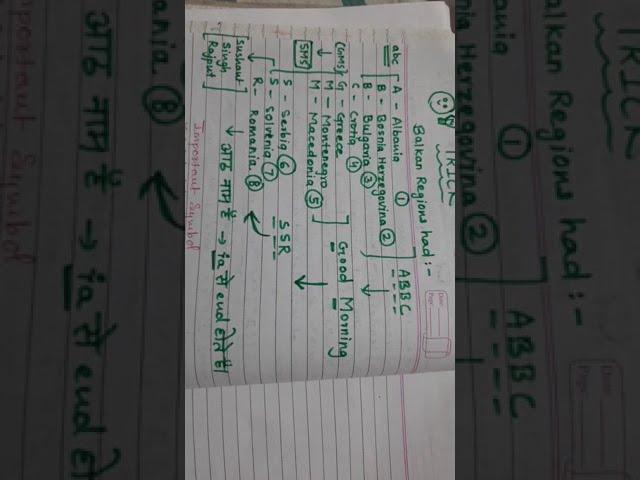 TRICK
Balkan Regions had :-
abc A - Albania ① ABBC
B - Bosnia Herzegovina ②
B - Bulgaria ③
C - Crotia ④
(GMS) G - Greece Good Morning
M - Montenegro
SMS M - Macedonia ⑤
S - Serbia ⑥ SSR
S - Solvenia ⑦
R - Romania ⑧
Sushant
Singh
Rajput
आठ नाम हैं → ia से end होते हैं
Important Symbol